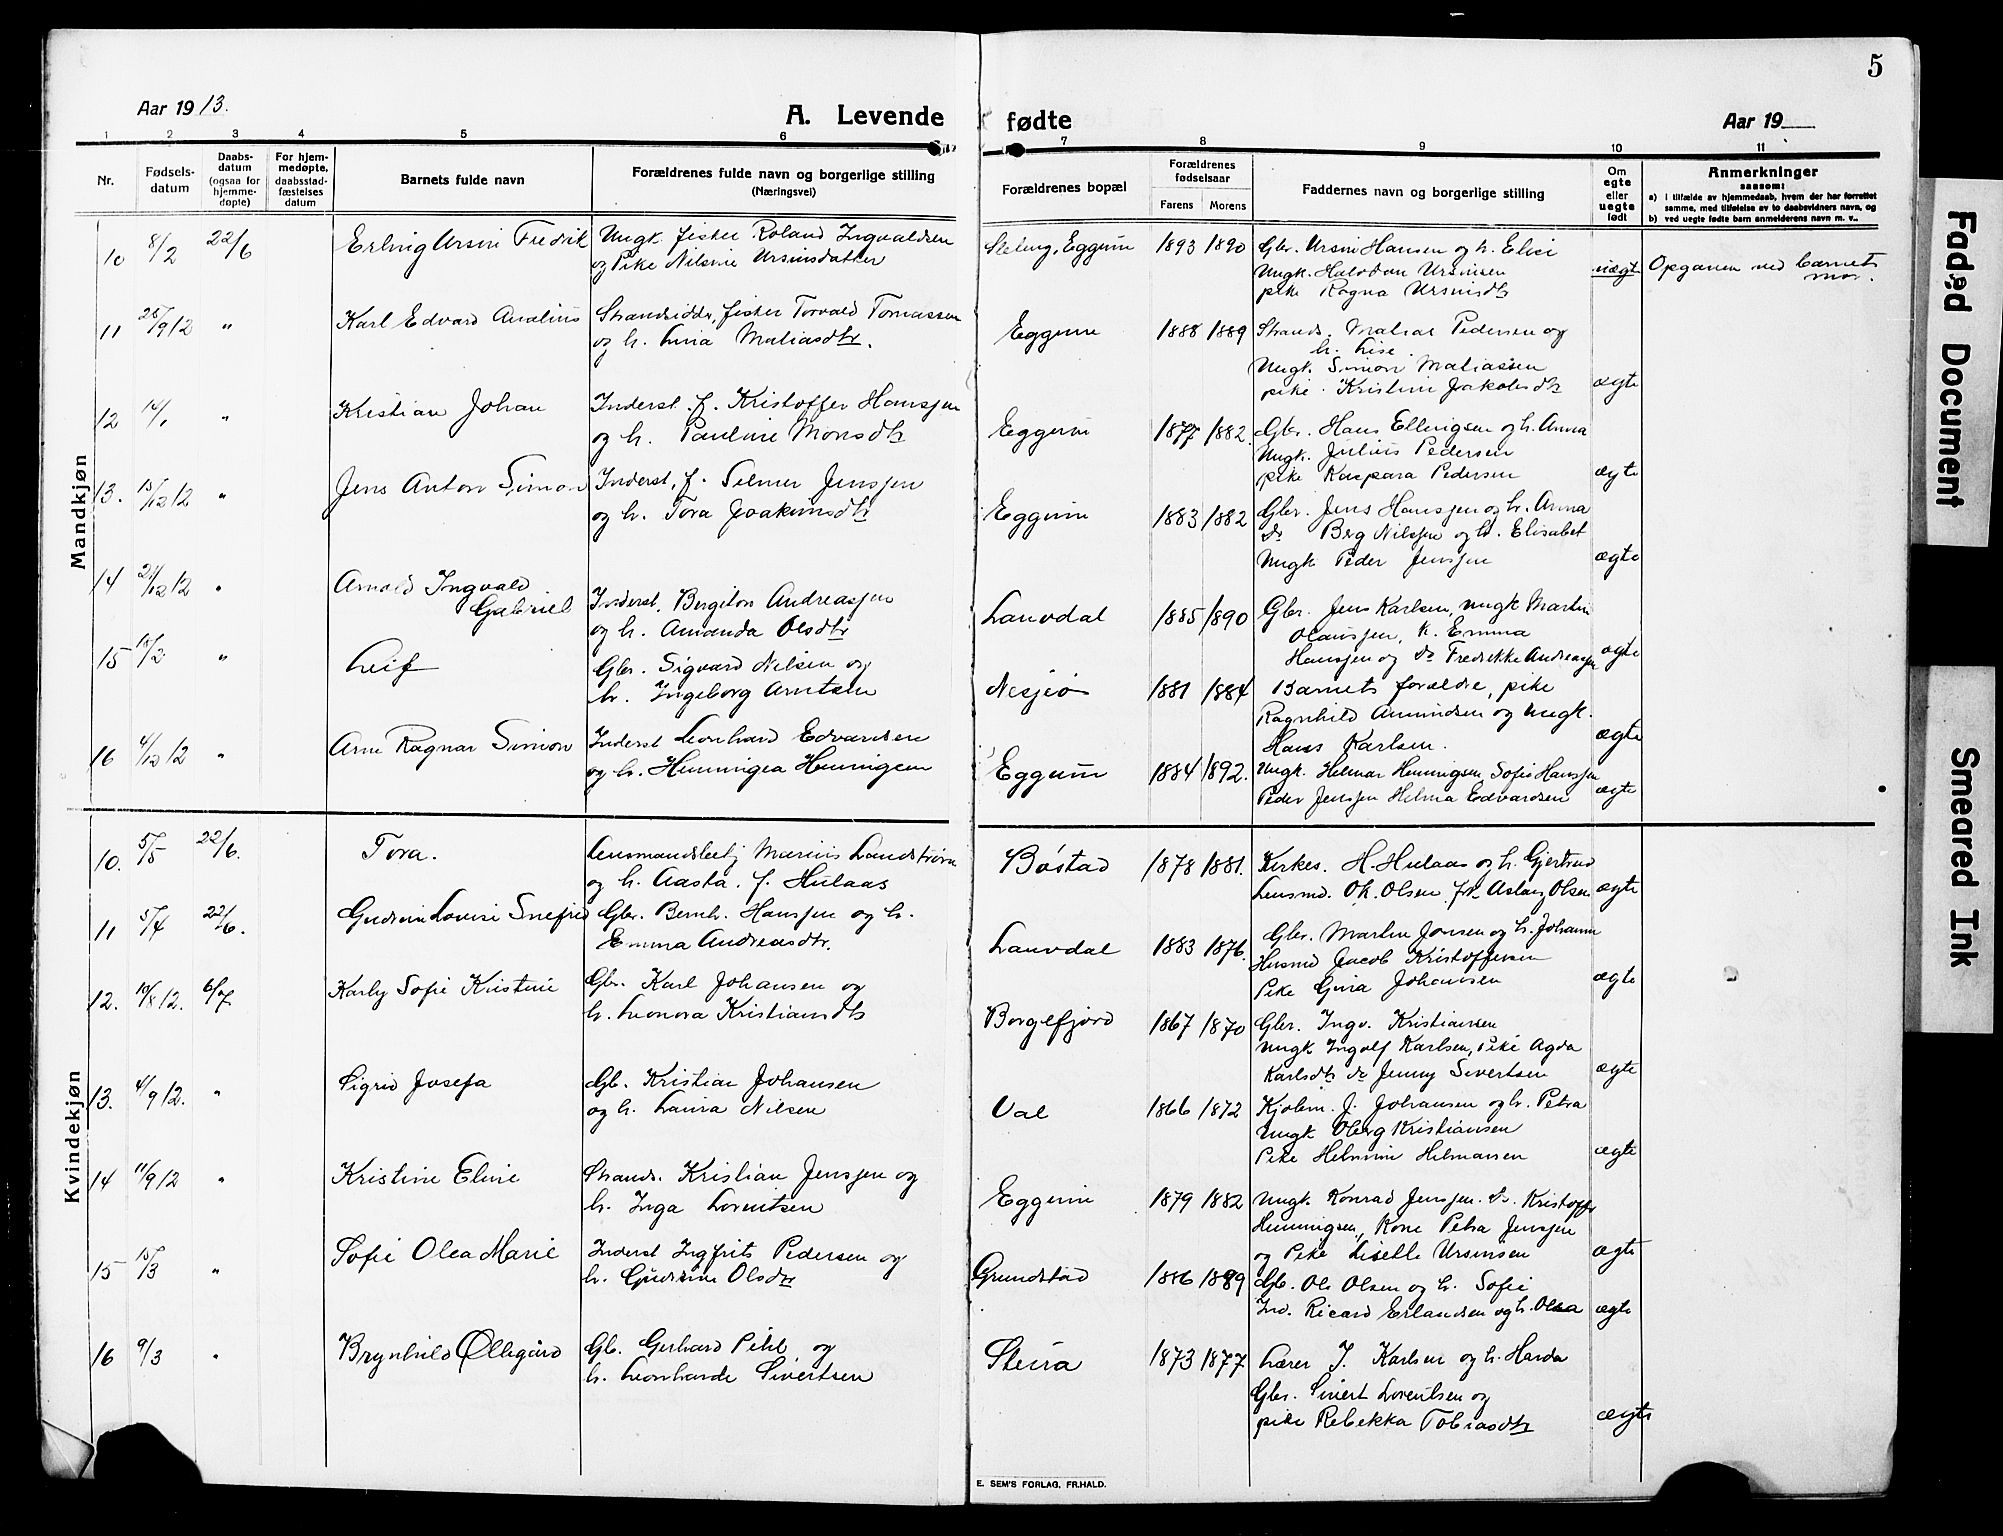 5
Aar 1913.
A. Levende fødte
Aar 19
1 2 3 4 5 6 7 8 9 10 11
Nr.
Fødsels-
datum
Daabs-
datum
(ogsaa for
hjemme-
døpte)
For hjem-
medøpte,
daabsstad-
fæstelses
datum
Barnets fulde navn
Forældrenes fulde navn og borgerlige stilling
(Næringsvei)
Forældrenes bopæl
Forældrenes
fødselsaar
Farens Morens
Faddernes navn og borgerlige stilling
Om
egte
eller
uegte
født
Anmerkninger
saasom:
a) i tilfælde av hjemmedaab, hvem der har forrettet
samme, med tilføielse av to daabsvidners navn, og
b) ved uegte fødte barn anmelderens navn m. v..
Mandkjøn
10 8/2 22/6 Erling Ursin Fredrik
Ungk. fisker Roland Ingvaldsen
og Pike Nilsine Ursinsdatter
Eggum 1893 1890
Gbr. Ursin Hansen og h. Elise
Ungk. Halvdan Ursinsen
pike Ragna Ursinsdtr
uægt
Opgaven ved barnets
mor.
11 25/9 12 " Karl Edvard Analius
Strandsidder, fisker Torvald Tomassen
og h. Lina Matiasdtr.
Eggum 1888 1889
Strands. Matias Pedersen og
h. Lise.
Ungk. Simon Matiassen
pike. Kristine Jakobsdtr
ægte
12 14/1 " Kristian Johan
Inderst. f. Kristoffer Hansjen
og h. Pauline Monsdtr
Eggum 1877 1882.
Gbr. Hans Ellingsen og h. Anna
Ungk. Julius Pedersen
pike Kaspara Pedersen
ægte
13. 15/12 12 " Jens Anton Simon
Inderst, f. Selmer Jensjen
og h. Tora Joakimsdtr
Eggum 1883 1882
Gbr. Jens Hansjen og h. Anna
do Berg Nilsjen og h. Elisabet
Ungk Peder Jensjen
ægte
14 21/12 12 " Arnold Ingvald
Gabriel
Inderst. Bergiton Andreasjen
og h. Amanda Olsdtr
Lauvdal 1885 1890
Gbr. Jens Karlsen, ungk Martin
Olausjen, k. Emma
Hansjen og do Fredrikke Andreasjen
ægte
15 15/2 " Leif
Gbr. Sigvard Nilsen og
h. Ingeborg Arntsen
Nesjeö 1881 1884
Barnets forældre, pike
Ragnhild Amundsen og ungk.
Hans Karlsen.
ægte
16 4/12 12 " Arne Ragnar Simon
Inderst Leonhard Edvardsen
og h. Henningea Henningsen
Eggum 1884 1892.
Ungk. Helmar Henningsen, Sofie Hansjen
Peder Jensjen Helma Edvardsen
ægte
Kvindekjøn
10. 5/5 22/6. Tora.
Lensmandsbetj Marius Landstrøm
og h. Aasta. f. Hulaas
Bøstad 1878 1881.
Kirkes. H. Hulaas og h. Gjertrud
Lensmd. Ok. Olsen frk Aslaug Olsen
ægte
11 5/4 22/6. Gudrun Lovise Snefrid
Gbr. Bernh. Hansjen og h.
Emma Andreasdtr.
Lauvdal 1883 1876.
Gbr. Martin Jonsen og h. Johanne
Husmd Jacob Kristoffersen
Pike Gina Johansen
ægte
12. 10/8 12. 6/7 Karly Sofie Kristine
Gbr. Karl Johansen og
h. Leonora Kristiansdtr
Borgefjord 1867 1870
Gbr. Ingv. Kristiansen
Ungk Ingolf Karlsen, pike Agda
Karlsdtr do Jenny Sivertsen
ægte
13. 4/9 12. " Sigrid Josefa
Gb. Kristian Johansen
og h. Laura Nilsen
Val 1866 1872
Kjøbm. J. Johansen og h. Petra
Ungk Oberg Kristiansen
Pike Helmine Helmersen
ægte
14 11/9 12 " Kristine Eline
Strands. Kristian Jensjen og
h. Inga Lorentsen
Eggum 1879 1882
Ungk Konrad Jensjen. do. Kristoffer
Henningsen, Kone Petra Jensjen
og Pike Liselle Ursinsen
ægte
15 15/3 " Sofie Olea Marie
Inderst Ingfrits Pedersen og
h. Gudrun Olsdtr
Grundstad 1886 1889
Gb. Ole Olsen og h. Sofie
Ind. Ricard Erlandsen og h. Olea
ægte
16 9/3 " Brynhild Øllegård
Gb. Gerhard Pihl og
h. Leonharde Sivertsen
Steira 1873 1877
Lærer J. Karlsen og h. Harda
Gbr. Sivert Lorentsen og
pike Rebekka Tobiasdtr
ægte
E. SEM'S FORLAG, FR.HALD.
Faded Document
Smeared Ink